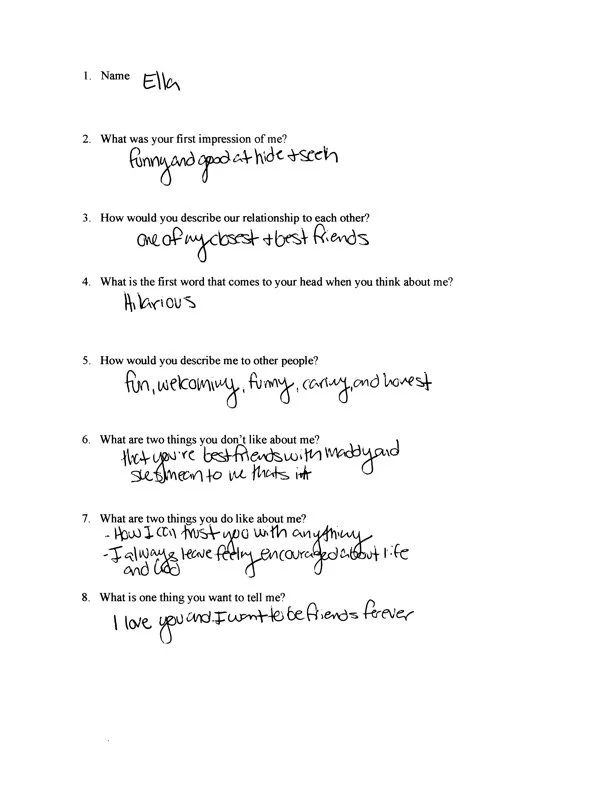 1. Name Ella
2. What was your first impression of me?
funny and good at hide + seek
3. How would you describe our relationship to each other?
one of my closest + best friends
4. What is the first word that comes to your head when you think about me?
Hilarious
5. How would you describe me to other people?
fun, welcoming, funny, caring, and honest
6. What are two things you don't like about me?
that you're best friends with maddy and
she's mean to me thats it
7. What are two things you do like about me?
- How I can trust you with anything
- I always leave feeling encouraged about life
and God
8. What is one thing you want to tell me?
I love you and I want to be friends forever